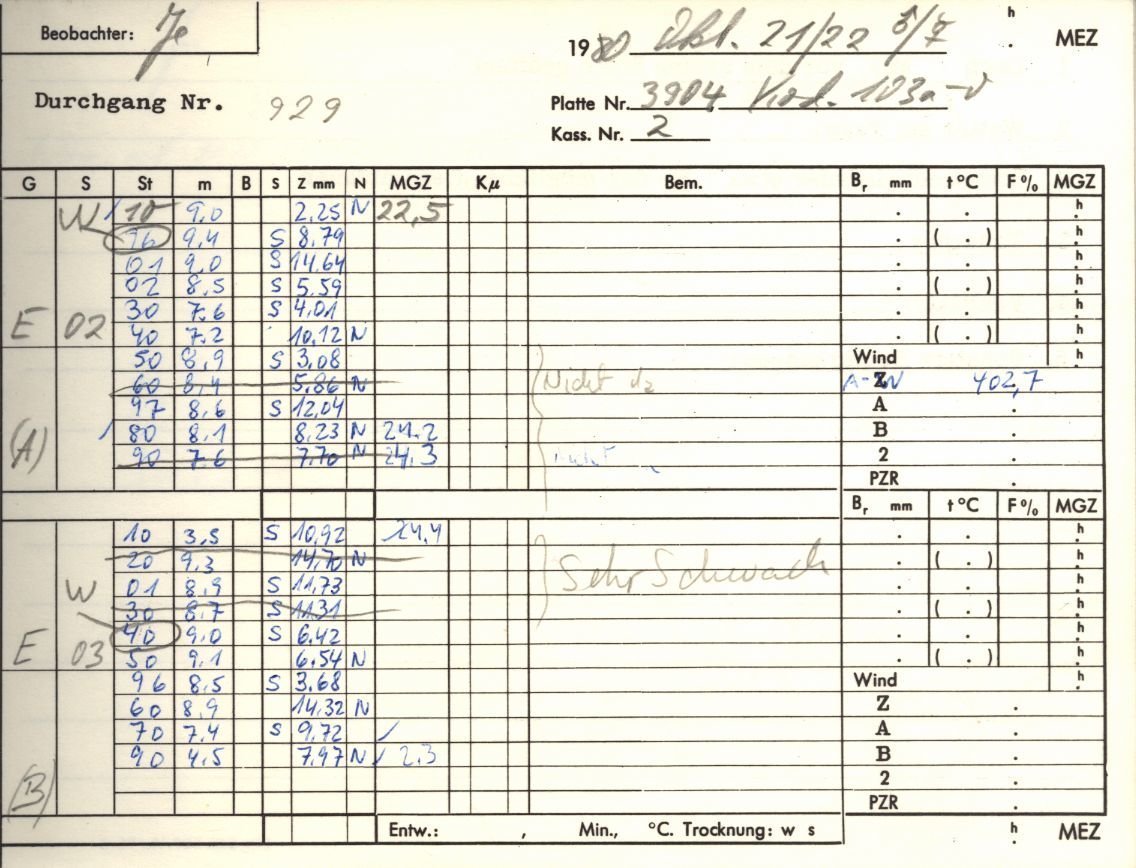 Beobachter: Je
1980 Okt. 21/22 h MEZ
Durchgang Nr. 929
Platte Nr. 3904, Kod. 103a-D
Kass. Nr. 2
G S St m B S Z mm N MGZ Kμ Bem. Br mm t°C F% MGZ
W 10 9,0 2,25 N 22,5 . . h
96 9,4 S 8,79 . ( . ) h
01 9,0 S 14,64 . . h
02 8,5 S 5,59 . ( . ) h
30 7,6 S 4,01 . . h
E 02 40 7,2 10,12 N . ( . ) h
50 8,9 S 3,08 Wind h
60 8,4 5,86 N Nicht da A-W Z 402,7
97 8,6 S 12,04 A .
(A) 80 8,1 8,23 N 24.2 B .
90 7,6 7,70 N 24,3 2 .
PZR .
Br mm t°C F% MGZ
10 3,5 S 10,92 24,4 . . h
20 9,3 14,70 N Sehr Schwach . ( . ) h
W 01 8,9 S 11,73 . . h
30 8,7 S 11,31 . ( . ) h
40 9,0 S 6,42 . . h
E 03 50 9,1 6,54 N . ( . ) h
96 8,5 S 3,68 Wind h
60 8,9 14,32 N Z .
70 7,4 S 9,72 A .
90 4,5 7,97 N 2,3 B .
(B) 2 .
PZR .
Entw.: , Min., °C. Trocknung: w s h MEZ